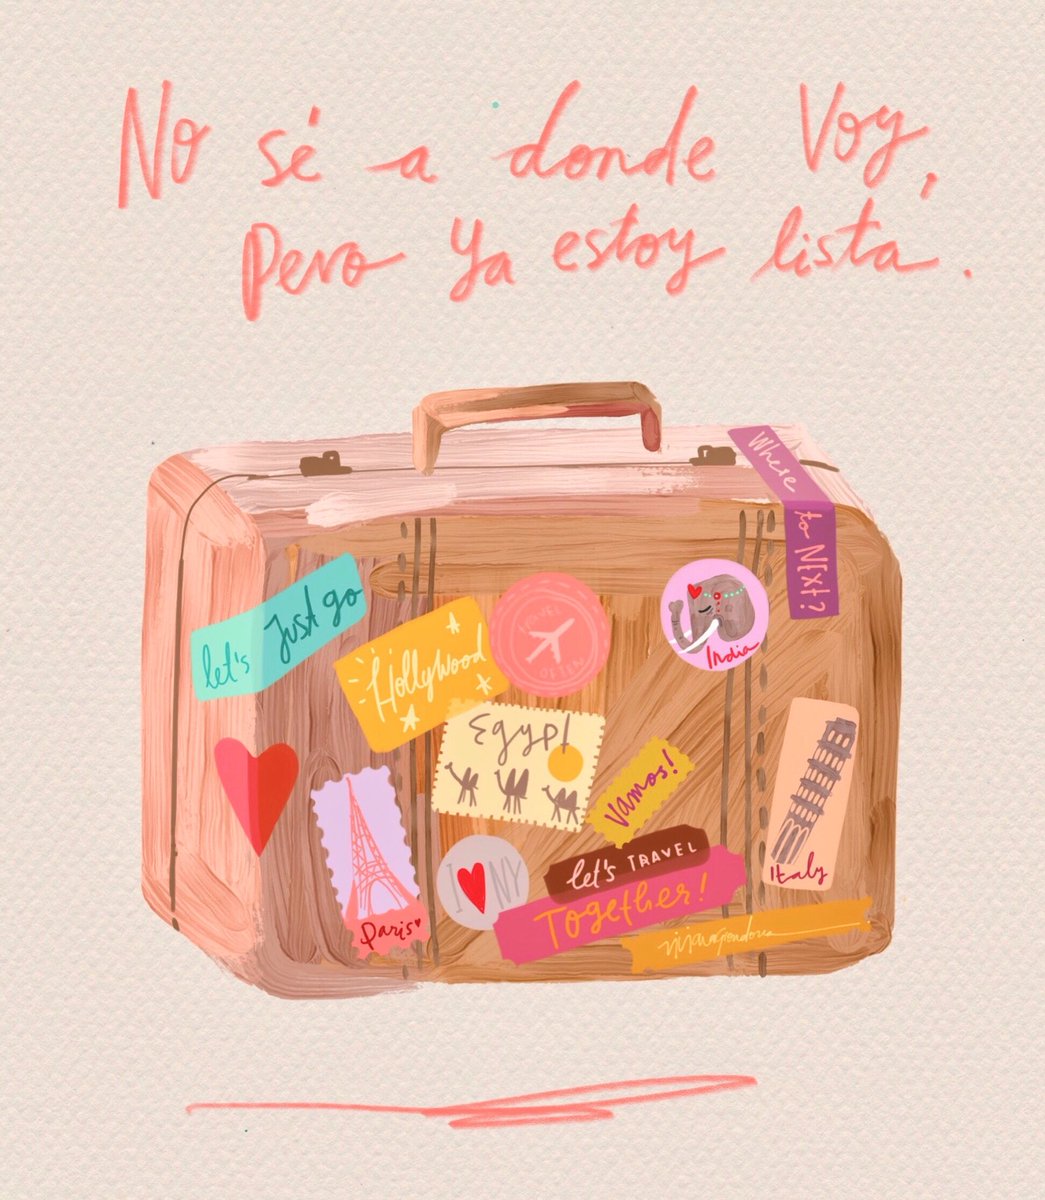 No sé a donde Voy,
Pero Ya estoy lista.
Where to NExt?
let's Just go
Hollywood
TRAVEL
OFTEN
India
Egypt
Vamos!
Italy
Paris
I ♥ NY
let's TRAVEL
Together!